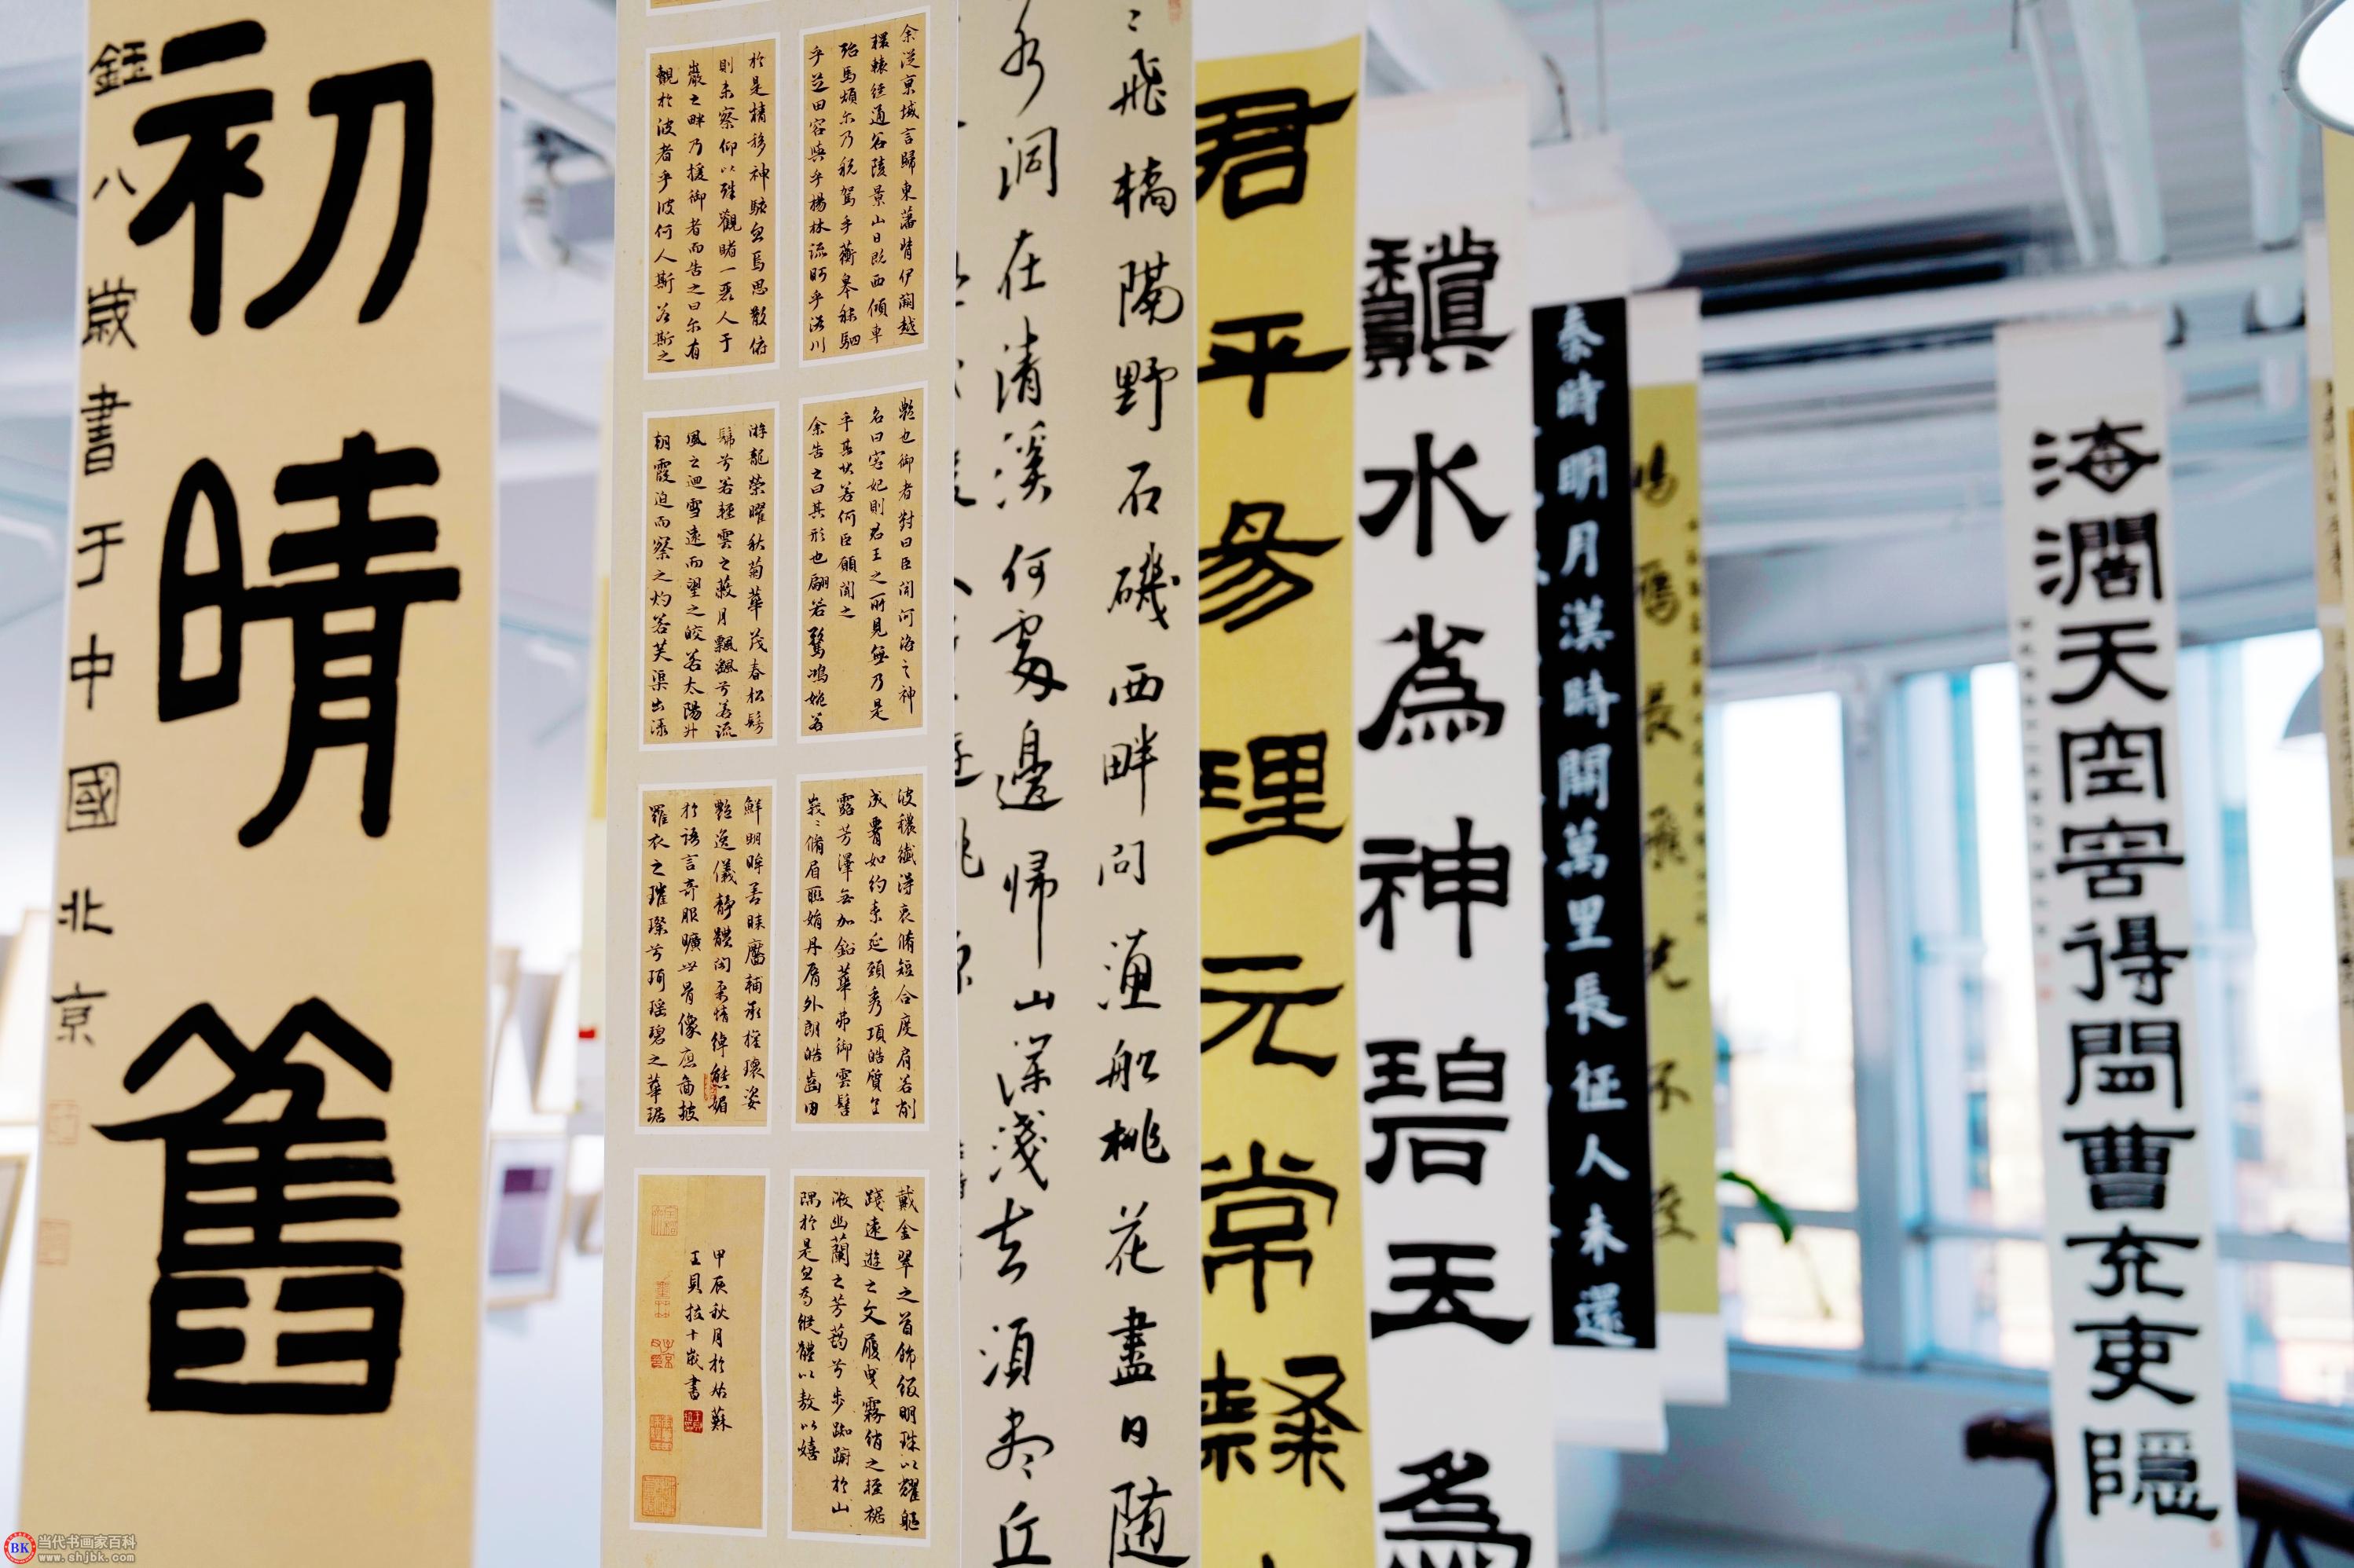 初晴舊
鈺八歲書于中國北京
余從京域言歸東藩背伊闕越
轘轅經通谷陵景山日既西傾車
殆馬煩尔乃稅駕乎蘅皋秣駟
乎芝田容與乎楊林流眄乎洛川
於是精移神駭忽焉思散俯
則未察仰以殊觀睹一麗人于
巖之畔乃援御者而告之曰尔有
覿於彼者乎彼何人斯若斯之
艷也御者對曰臣聞河洛之神
名曰宓妃則君王之所見無乃是
乎其狀若何臣願聞之
余告之曰其形也翩若驚鴻婉若
游龍榮曜秋菊華茂春松髣
髴兮若輕雲之蔽月飄颻兮若流
風之迴雪遠而望之皎若太陽升
朝霞迫而察之灼若芙渠出淥
波穠纖得衷脩短合度肩若削
成腰如約素延頸秀項皓質呈
露芳澤無加鉛華弗御雲髻
峩〻脩眉聯娟丹脣外朗皓齒内
鮮明眸善睞靨輔承權瓌姿
艷逸儀靜體閑柔情綽態媚
於語言奇服曠世骨像應圖披
羅衣之璀璨兮珥瑤碧之華琚
戴金翠之首飾綴明珠以耀軀
踐遠遊之文履曳霧綃之輕裾
微幽蘭之芳藹兮步踟躕於山
隅於是忽焉縱體以遨以嬉
甲辰秋月於姑蘇
王貝拉十歲書
飛橋隔野石磯西畔問漁船桃花盡日随
水洞在清溪何處邊歸山深淺去須盡丘
君平易理元常隸
水為神碧玉為
秦時明月漢時關萬里長征人未還
鴻雁長飛光不度
海濶天空容得閒曹充吏隱
BK 当代书画家百科
www.shjbk.com